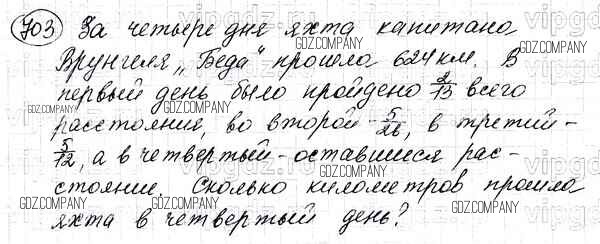 703 За четыре дня яхта капитана
Врунгеля „Беда" прошла 624 км. В
первый день было пройдено 2/13 всего
расстояния, во второй - 5/26, в третий -
5/12, а в четвертый - оставшиеся рас-
стояние. Сколько километров прошла
яхта в четвертый день?
GDZ.COMPANY
GDZ.COMPANY
GDZ.COMPANY
GDZ.COMPANY
GDZ.COMPANY
GDZ.COMPANY
GDZ.COMPANY
GDZ.COMPANY
GDZ.COMPANY
GDZ.COMPANY
GDZ.COMPANY
GDZ.COMPANY